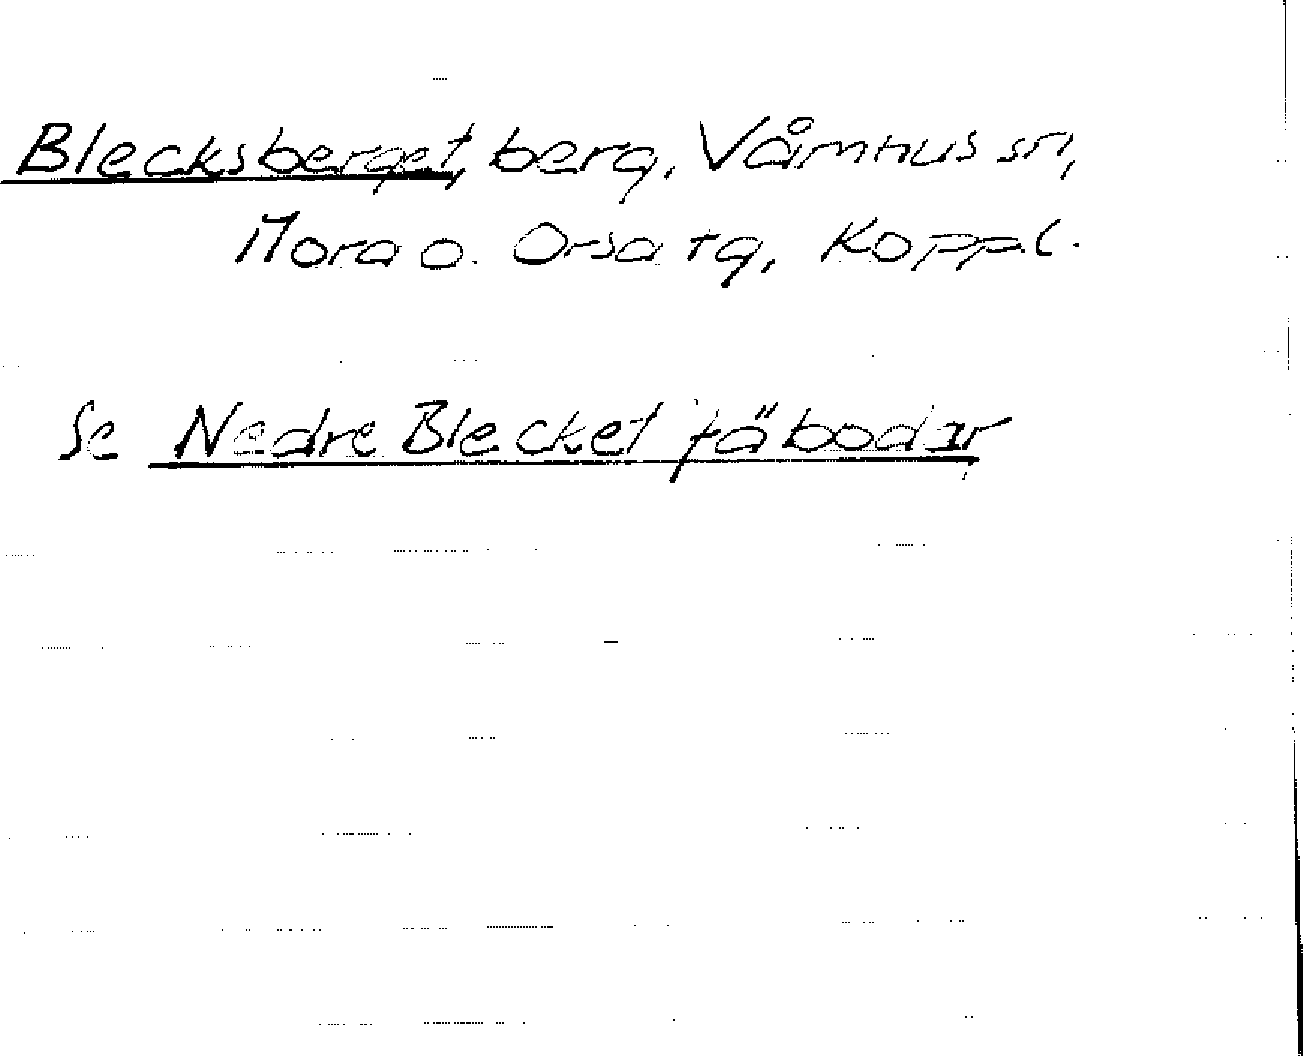 Blecksberget, berg, Våmhus sn,
Mora o. Orsa tg, Koppl.
Se Nedre Blecket fäbodar